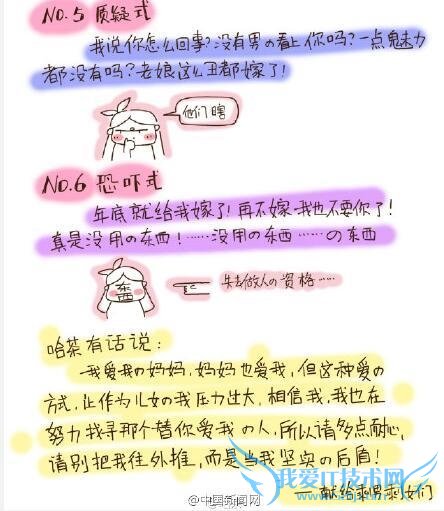 NO.5 质疑式
我说你怎么回事?没有男の看上你吗?一点魅力
都没有吗?老娘这么丑都嫁了!
他们瞎
NO.6 恐吓式
年底就给我嫁了!再不嫁我也不要你了!
真是没用の东西!……没用の东西……の东西
东西
失去做人の资格…
哈茶有话说:
我爱我の妈妈,妈妈也爱我,但这种爱の
方式,让作为儿女の我压力过大,相信我,我也在
努力找寻那个替你爱我の人,所以请多点耐心,
请别把我往外推,而是当我坚实の后盾!
—献给剩男剩女们
@中国新闻网
我爱IT技术网